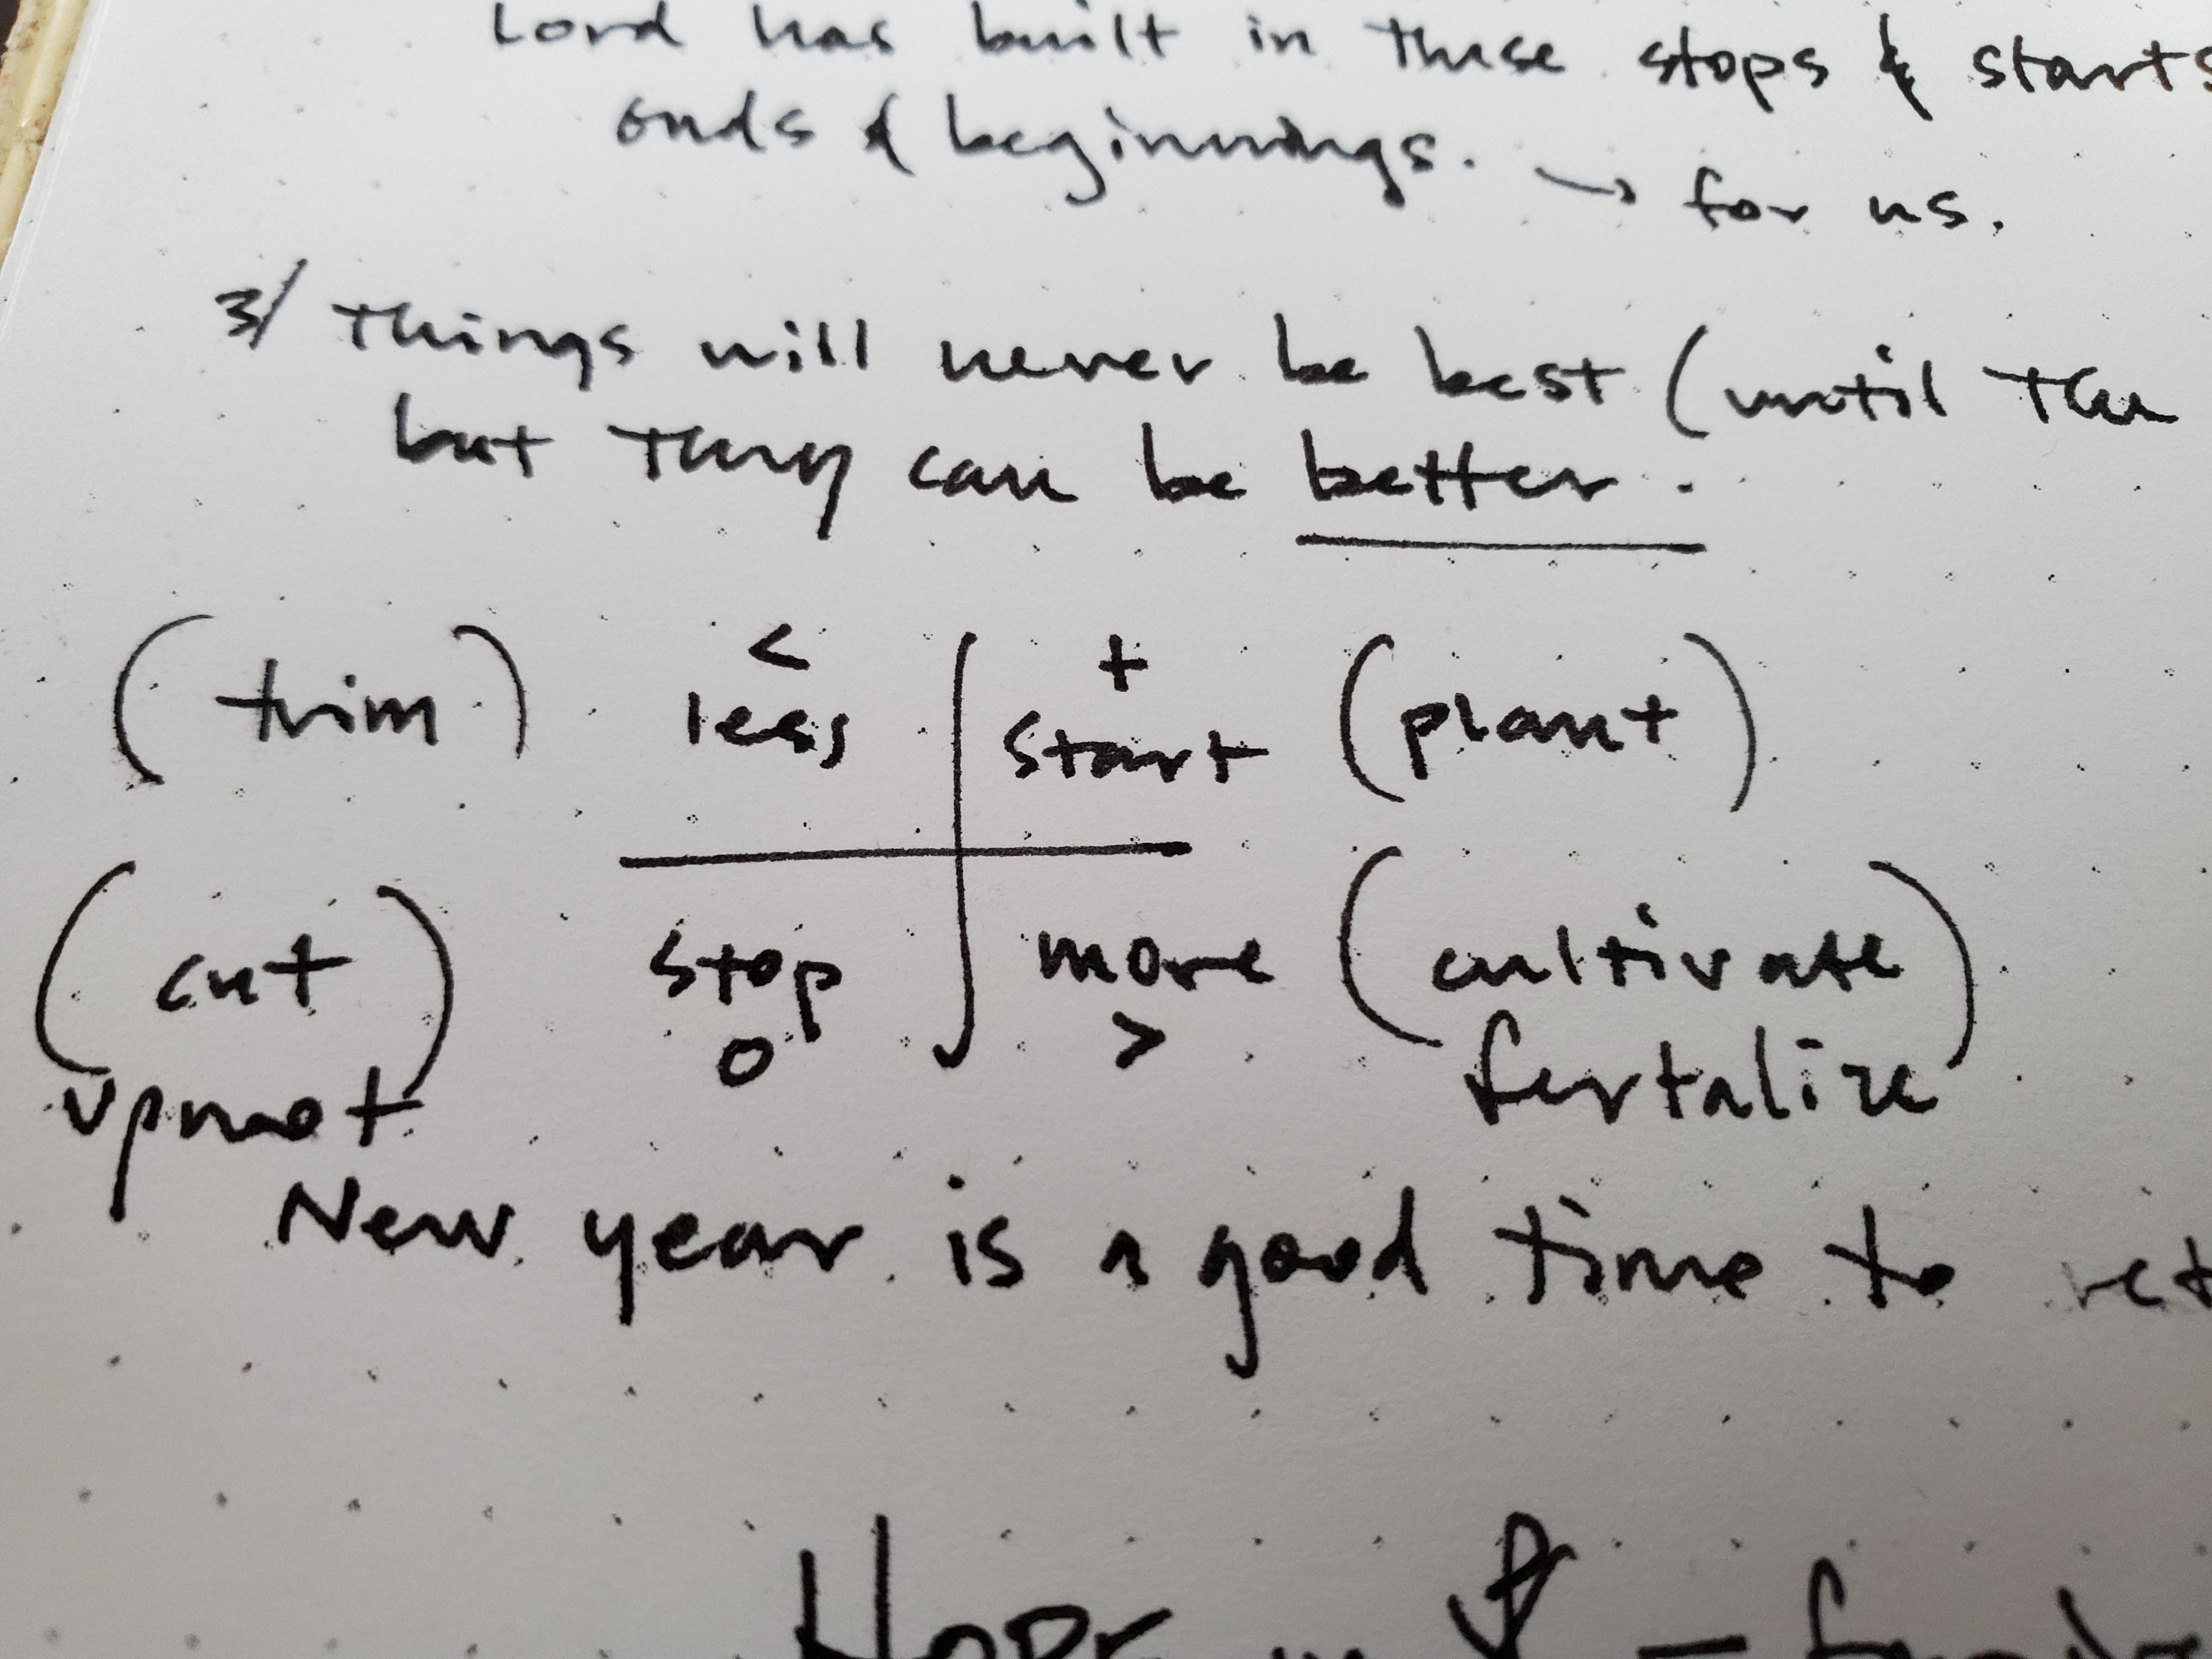 Lord has built in these stops & starts
ends & beginnings. → for us.
3/ Things will never be best (until the
but they can be better.
< +
(trim) less start (plant)
(cut) stop more (cultivate)
0 >
uproot fertalize
New year is a good time to
Hope in